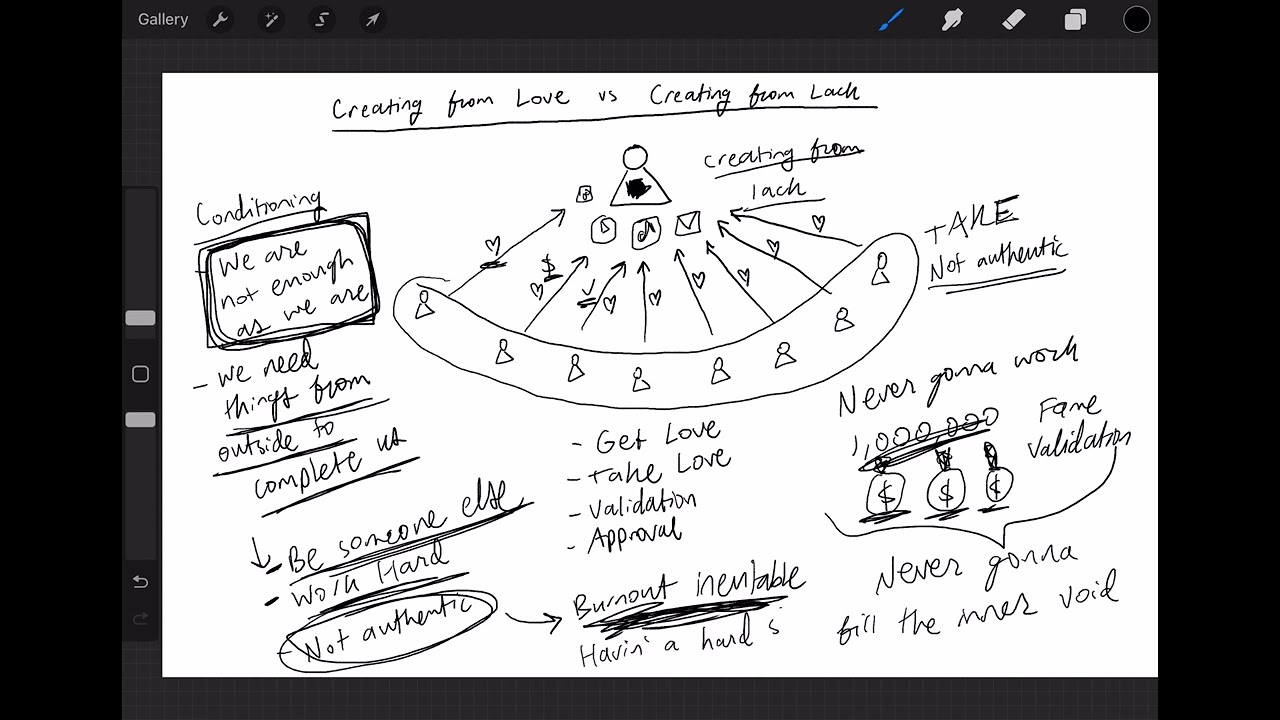 Gallery
Creating from Love vs Creating from Lack
creating from
lack
Conditioning
- We are
not enough
as we are
- we need
things from
outside to
complete us
- Be someone else
- Work Hard
- Not authentic
$
TAKE
Not authentic
- Get Love
- take Love
- Validation
- Approval
Burnout inevitable
Havin' a hard s
Never gonna work
1,000,000
Fame
Validation
$ $ $
Never gonna
fill the inner void